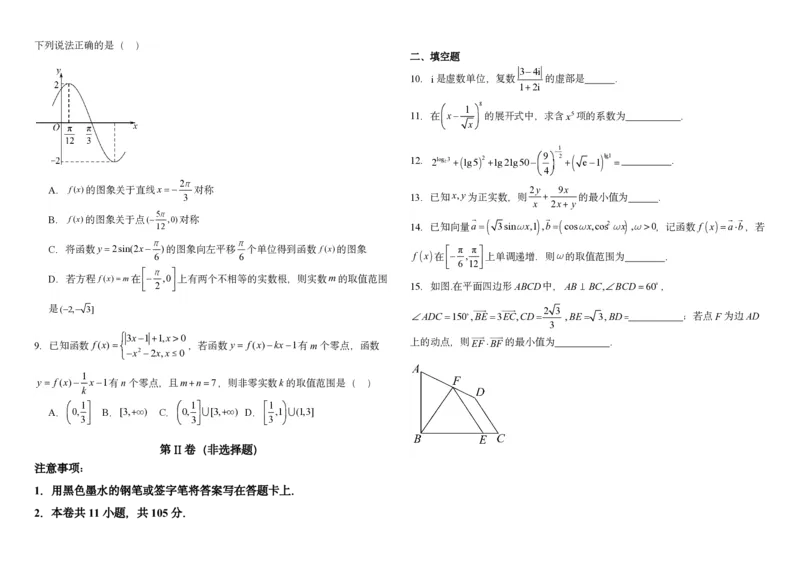 下列说法正确的是（ ）
y
2
O π/12 π/3 x
−2
A． f(x)的图象关于直线x=−2π/3对称
B． f(x)的图象关于点(−5π/12,0)对称
C．将函数y=2sin(2x−π/6)的图象向左平移π/6个单位得到函数f(x)的图象
D．若方程f(x)=m在[−π/2,0]上有两个不相等的实数根，则实数m的取值范围
是(−2,−3]
9．已知函数f(x)={|3x−1|+1,x>0 −x²−2x,x≤0，若函数y=f(x)−kx−1有m个零点，函数
y=f(x)−1/k x−1有n个零点，且m+n=7，则非零实数k的取值范围是（ ）
A．(0,1/3] B．[3,+∞) C．(0,1/3]∪[3,+∞) D．[1/3,1)∪(1,3]
第Ⅱ卷（非选择题）
注意事项：
1．用黑色墨水的钢笔或签字笔将答案写在答题卡上．
2．本卷共11小题，共105分．
二、填空题
10．i是虚数单位，复数|3−4i|/1+2i的虚部是______．
11．在(x−1/√x)⁸的展开式中，求含x⁵项的系数为___________．
12．2^log₂3+(lg5)²+lg2lg50−(9/4)^−1/2+(√e−1)^lg1=__________．
13．已知x,y为正实数，则2y/x+9x/2x+y的最小值为______．
14．已知向量a=(3sinωx,1),b=(cosωx,cos²ωx),ω>0，记函数f(x)=a·b，若
f(x)在[−π/6,π/12]上单调递增．则ω的取值范围为_________．
15．如图.在平面四边形ABCD中，AB⊥BC,∠BCD=60°，
∠ADC=150°,BE=3EC,CD=2 3/3,BE= 3,BD=____________；若点F为边AD
上的动点，则EF·BF的最小值为____________．
A
F
D
B E C